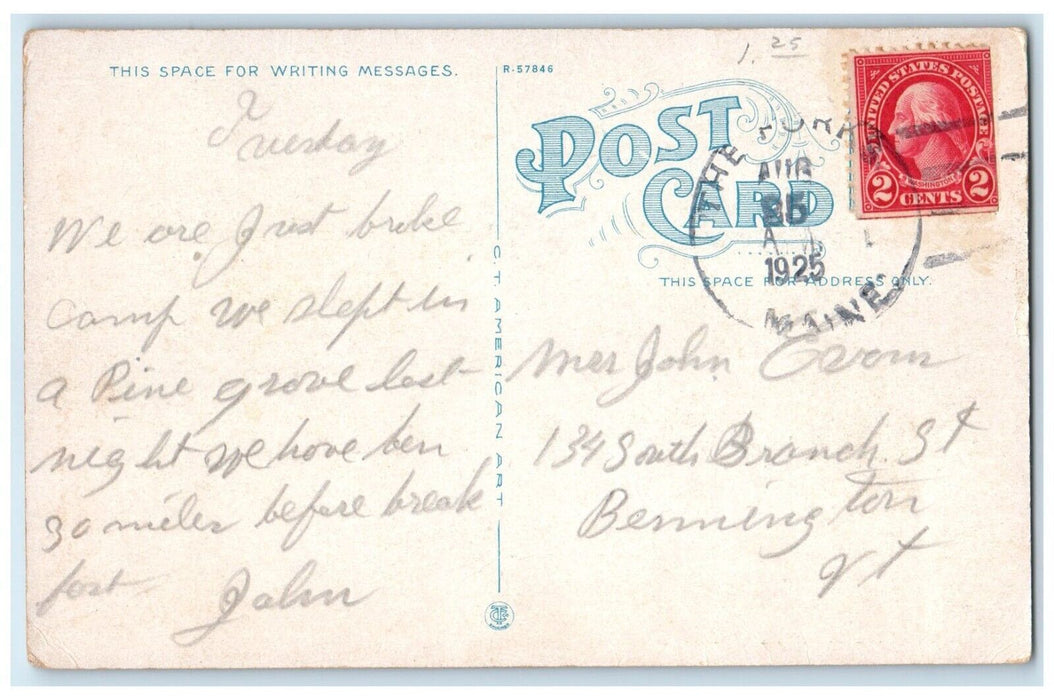 THIS SPACE FOR WRITING MESSAGES.
R-57846
1.25
Tuesday
We are Just broke
camp we slept in
a Pine grove last
night we have ben
30 miles before break
fast
John
C T AMERICAN ART
POST CARD
THIS SPACE FOR ADDRESS ONLY.
UNITED STATES POSTAGE
WASHINGTON
2 CENTS 2
THE FORKS
AUG
25
A
1925
MAINE.
Mrs John Evans
134 South Branch St
Bennington
Vt